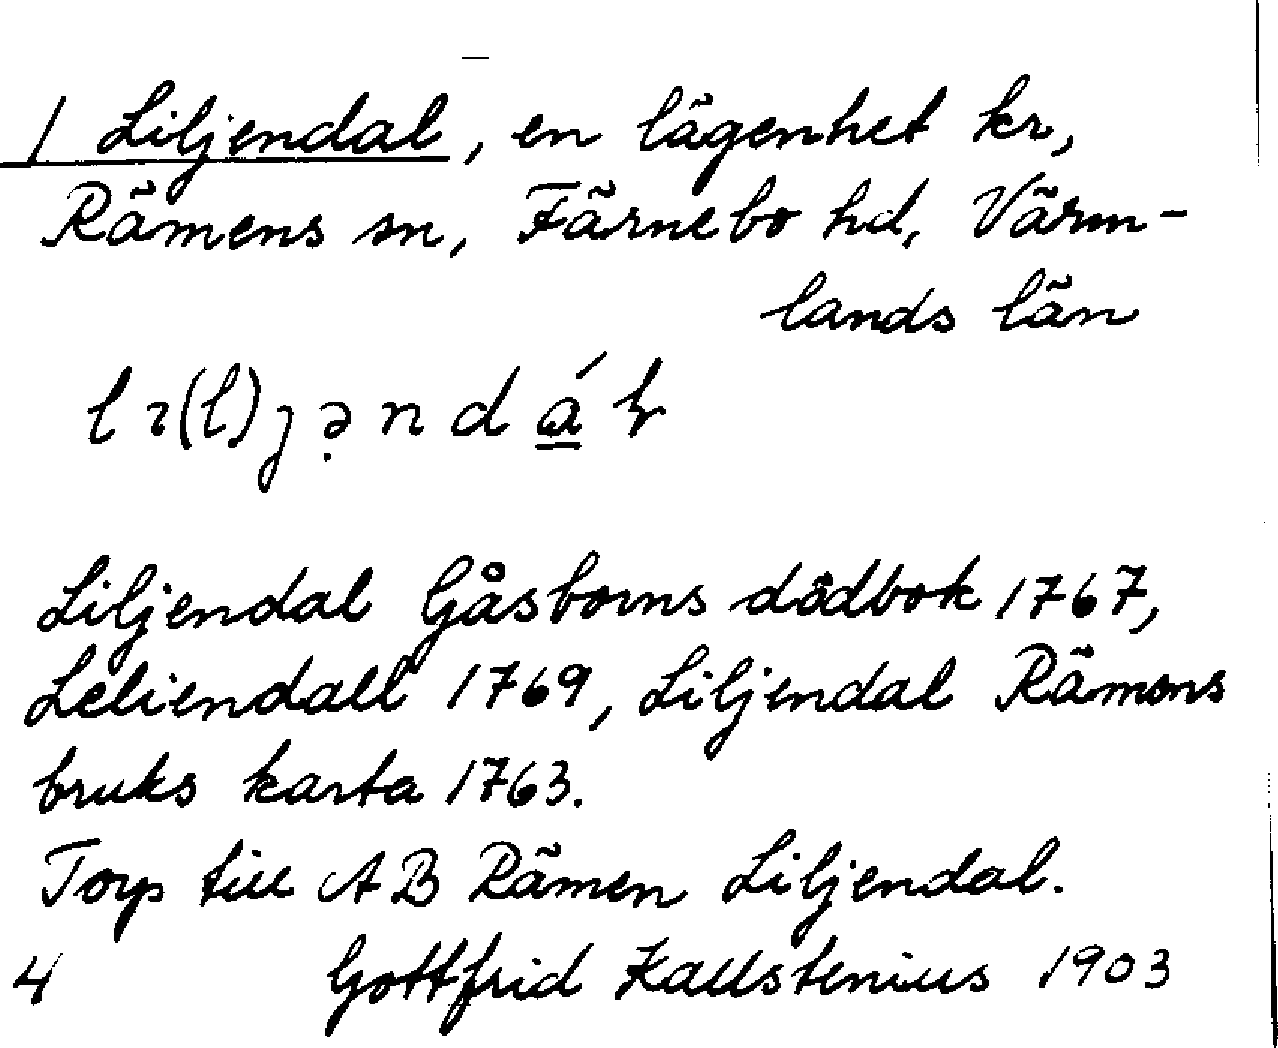 1 Liljendal, en lägenhet kr,
Rämens sn, Färnebo hd, Värm-
lands län
lɩ(l)ȷə̣ndá̳ꝉ
Liljendal Gåsborns dödbok 1767,
Leliendall 1769, Liljendal Rämens
bruks karta 1763.
Torp till AB Rämen Liljendal.
4 Gottfrid Kallstenius 1903